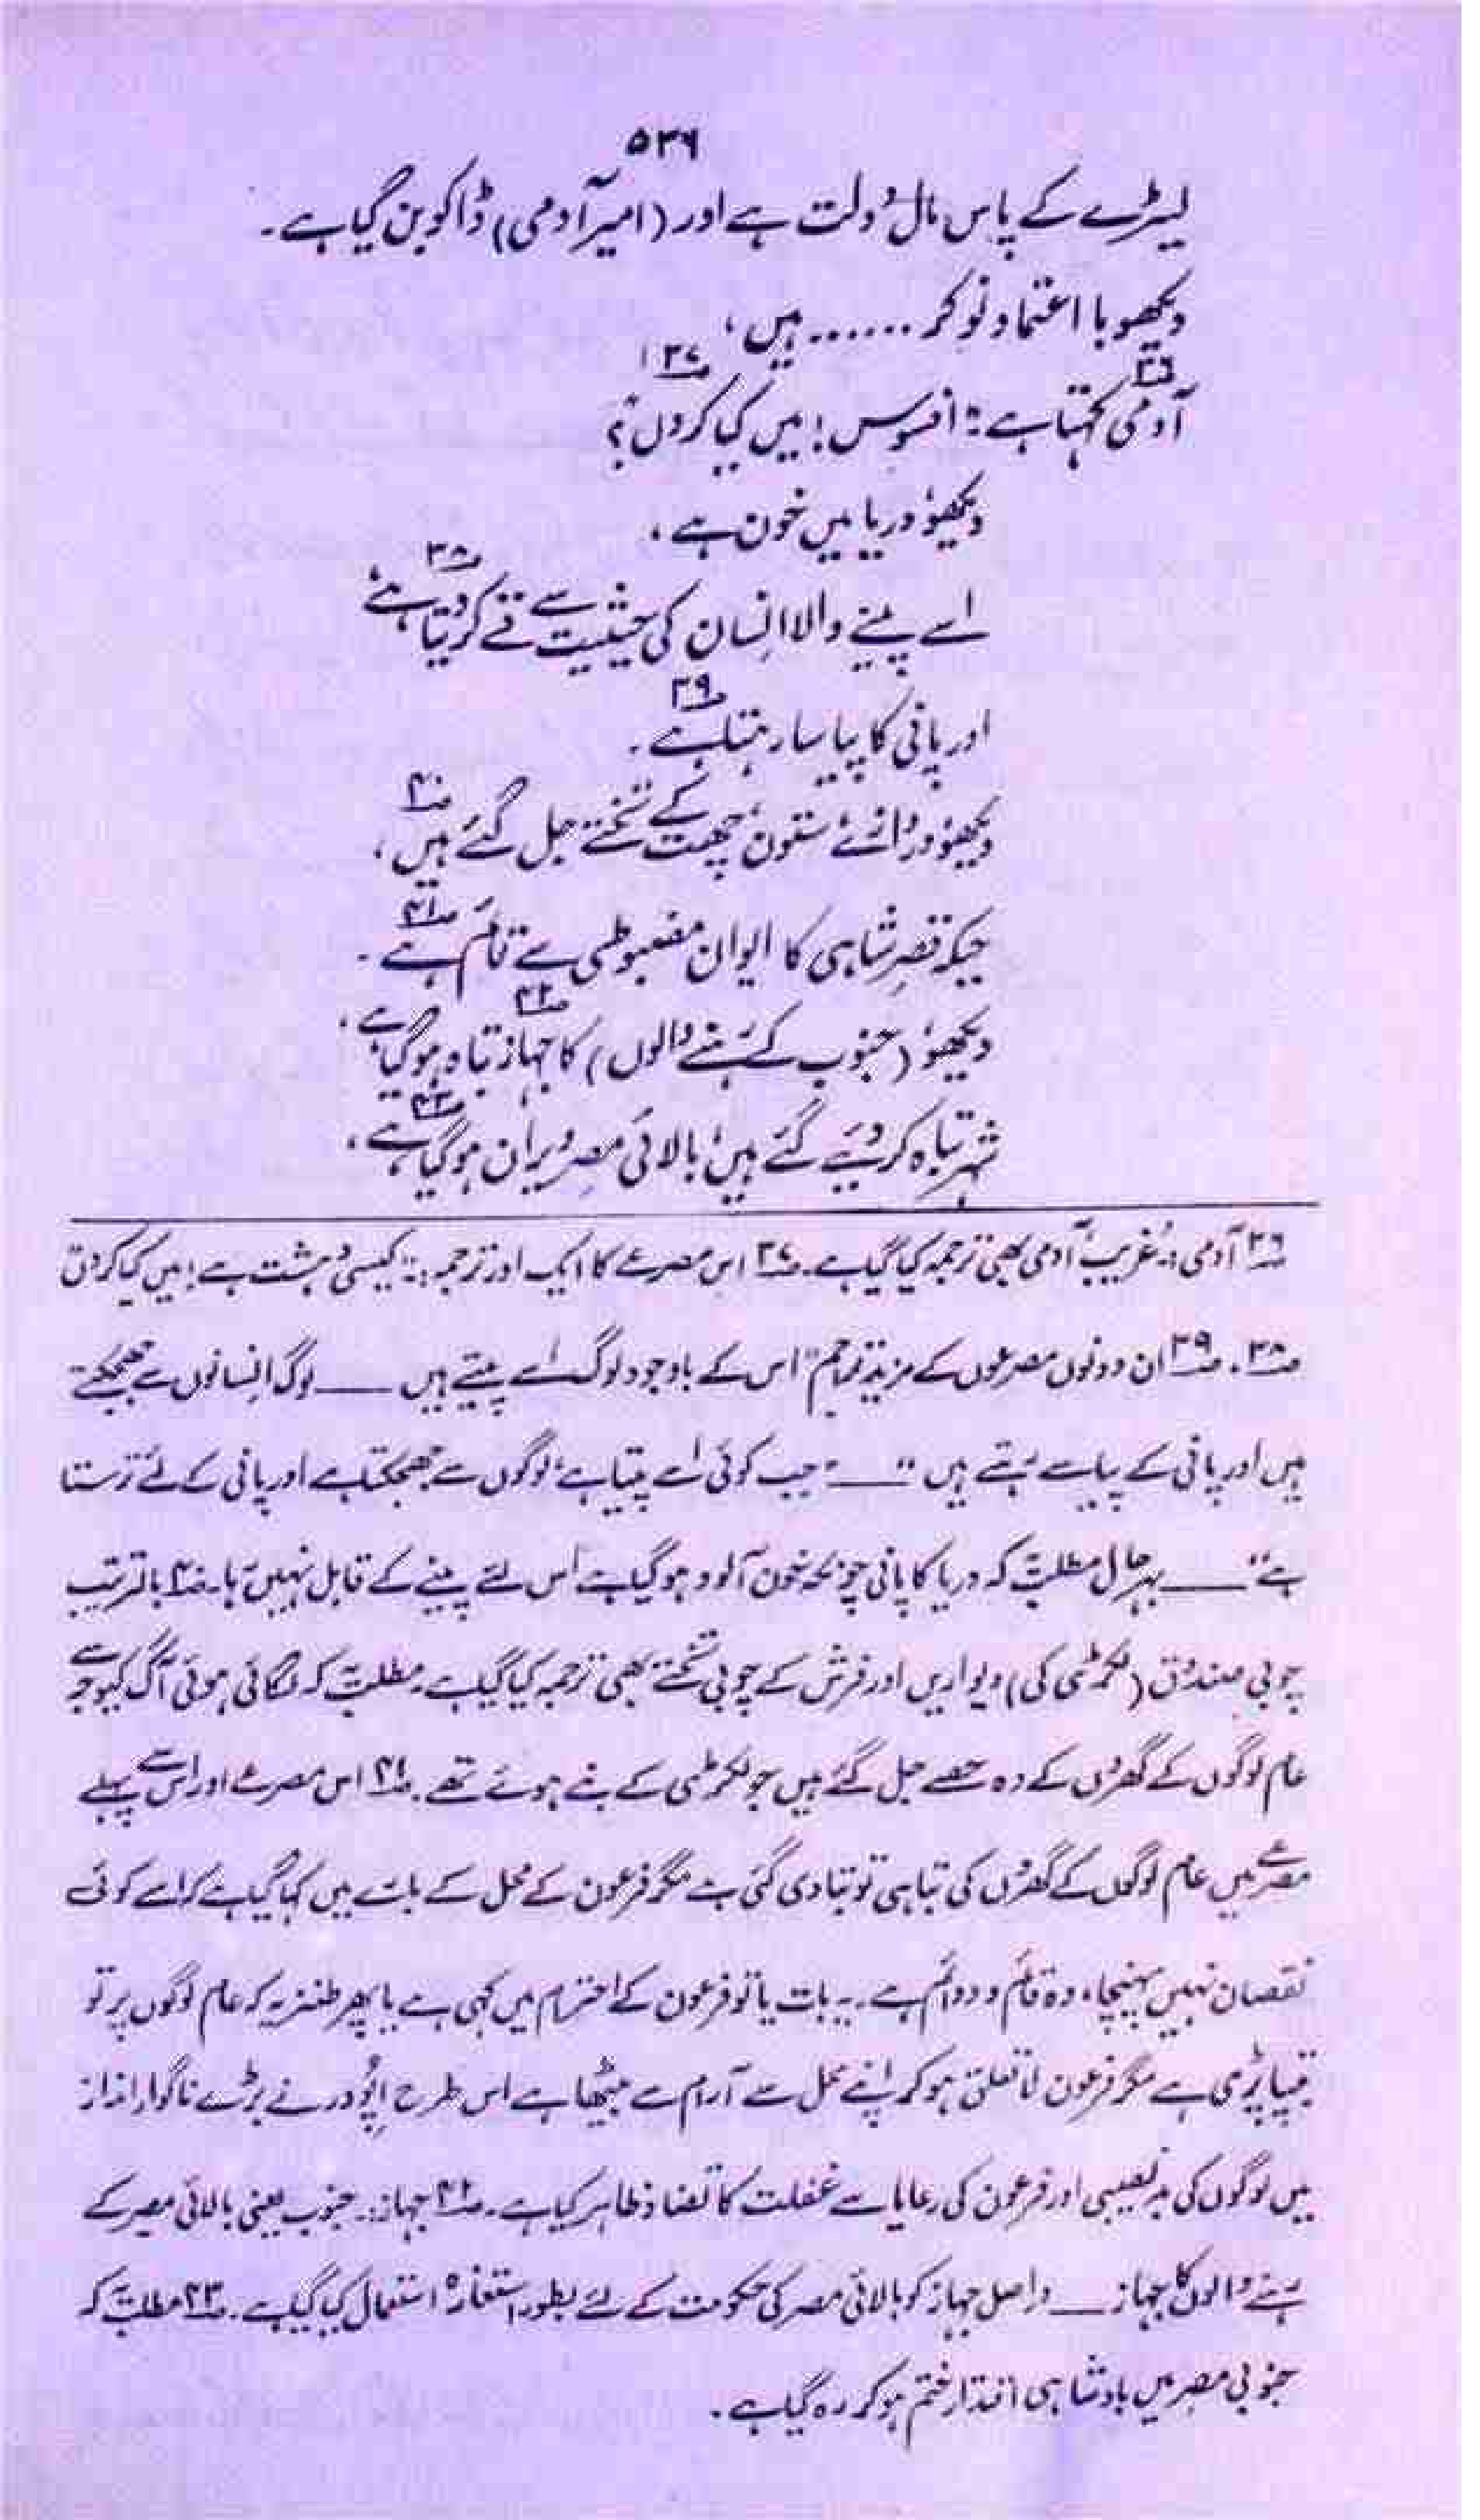 ۵۳۶
لیٹرے کے پاس مال و دولت ہے اور (امیر آدمی) ڈاکو بن گیا ہے۔
دیکھو با اعتماد نوکر ...... ہیں،
آدمی۳۶ کہتا ہے :" افسوس! میں کیا کروں؟"۳۷
دیکھو، دریا میں خون ہے،
اسے پینے والا انسان کی حیثیت سے قے کر دیتا ہے،۳۸
اور پانی کا پیاسا رہتا ہے۔۳۹
دیکھو، دروازے، ستون، چھت کے تختے جل گئے ہیں،۴۰
جبکہ قصرِ شاہی کا ایوان مضبوطی سے قائم ہے۔۴۱
دیکھو، (جنوب کے رہنے والوں) کا جہاز۴۲ تباہ ہو گیا ہے،
شہر تباہ کر دیئے گئے ہیں، بالائی مصر ویران ہو گیا ہے،۴۳
۳۶ آدمی :۔ "غریب آدمی" بھی ترجمہ کیا گیا ہے۔ ۳۷ اس مصرعے کا ایک اور ترجمہ :۔ "کیسی دہشت ہے! میں کیا کروں"
۳۸۔ ۳۹ ان دونوں مصرعوں کے مزید تراجم "اس کے باوجود لوگ اسے پیتے ہیں ـــــ لوگ انسانوں سے جھجکتے
ہیں اور پانی کے پیاسے رہتے ہیں" ـــــ "جب کوئی اسے پیتا ہے، لوگوں سے جھجکتا ہے اور پانی کے لئے ترستا
ہے" ـــــ بہرحال مطلب یہ کہ دریا کا پانی چونکہ خون آلود ہو گیا ہے اس لئے پینے کے قابل نہیں رہا۔ ۴۰ بالترتیب
چوبی صندوق (لکڑی کی) دیواریں اور فرش کے چوبی تختے بھی ترجمہ کیا گیا ہے۔ مطلب یہ کہ لگائی ہوئی آگ کیوجہ سے
عام لوگوں کے گھروں کے وہ حصے جل گئے ہیں جو لکڑی کے بنے ہوئے تھے۔ ۴۱ اس مصرعے اور اس سے پہلے
مصرعے میں عام لوگوں کے گھروں کی تباہی تو بتا دی گئی ہے مگر فرعون کے محل کے بارے میں کہا گیا ہے کہ اسے کوئی
نقصان نہیں پہنچا، وہ قائم و دوائم ہے۔ یہ بات یا تو فرعون کے احترام میں کہی ہے یا پھر طنزیہ کہ عام لوگوں پر تو
بپتا پڑی ہے مگر فرعون لا تعلق ہو کر اپنے محل سے آرام سے بیٹھا ہے اس طرح اِپُودر نے بڑے ناگوار انداز
میں لوگوں کی بدنصیبی اور فرعون کی رعایا سے غفلت کا تضاد ظاہر کیا ہے۔ ۴۲ جہاز :۔ جنوب یعنی بالائی مصر کے
رہنے والوں کا جہاز ـــــ دراصل جہاز کو بالائی مصر کی حکومت کے لئے بطور استعارہ استعمال کیا گیا ہے۔ ۴۳ مطلب یہ کہ
جنوبی مصر میں بادشاہی اقتدار ختم ہو کر رہ گیا ہے۔